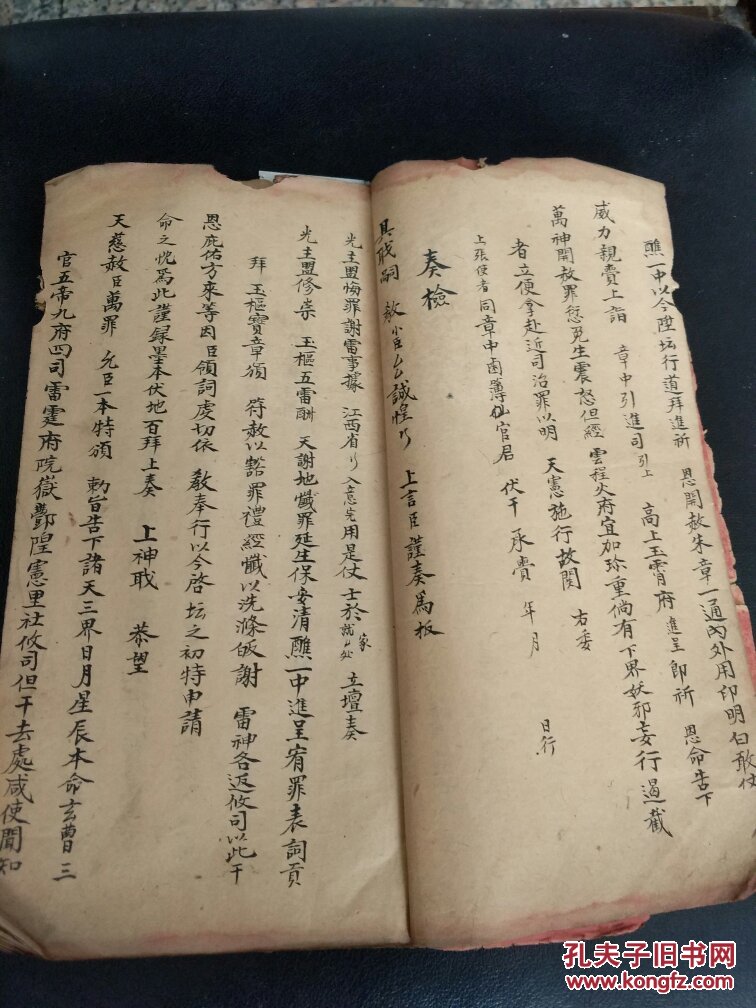 醮一中以今陞坛行道拜進祈　恩開赦朱章一通內外用印明白敢仗
威力親賫上詣　章中引進司引上　高上玉霄府進呈即祈　恩命告下
萬神開赦罪愆免生震怒但經　雲程火府宜加珍重倘有下界妖邪妄行過截
者立便拿赴近司治罪以明　天憲施行故関　右委
上張使者　同章中鹵簿仙官君　伏干　承賫　年　月　日行
奏檢
具职嗣　教小臣厶厶誠惶　上言臣謹奏爲板
光主盟悔罪謝雷事據　江西省　入意先用是仗　士於家就厶处　立壇奏
光主盟修崇　玉樞五雷酧　天謝地懺罪延生保安清醮一中進呈宥罪表詞貢
拜　玉樞寶章頒　符赦以豁罪禮　經懺以洗滌皈謝　雷神各返攸司以此干
恩庇佑方來等因臣領詞虔切依　教奉行以今啓坛之初特申請
命之忱爲此謹録墨本伏地百拜上奏　上神戢　恭望
天慈赦臣萬罪　允臣一本特頒　勅旨告下諸天三界日月星辰本命玄曹三
官五帝九府四司雷霆府院嶽酆隍憲里社攸司但干去處咸使聞知
孔夫子旧书网
www.kongfz.com